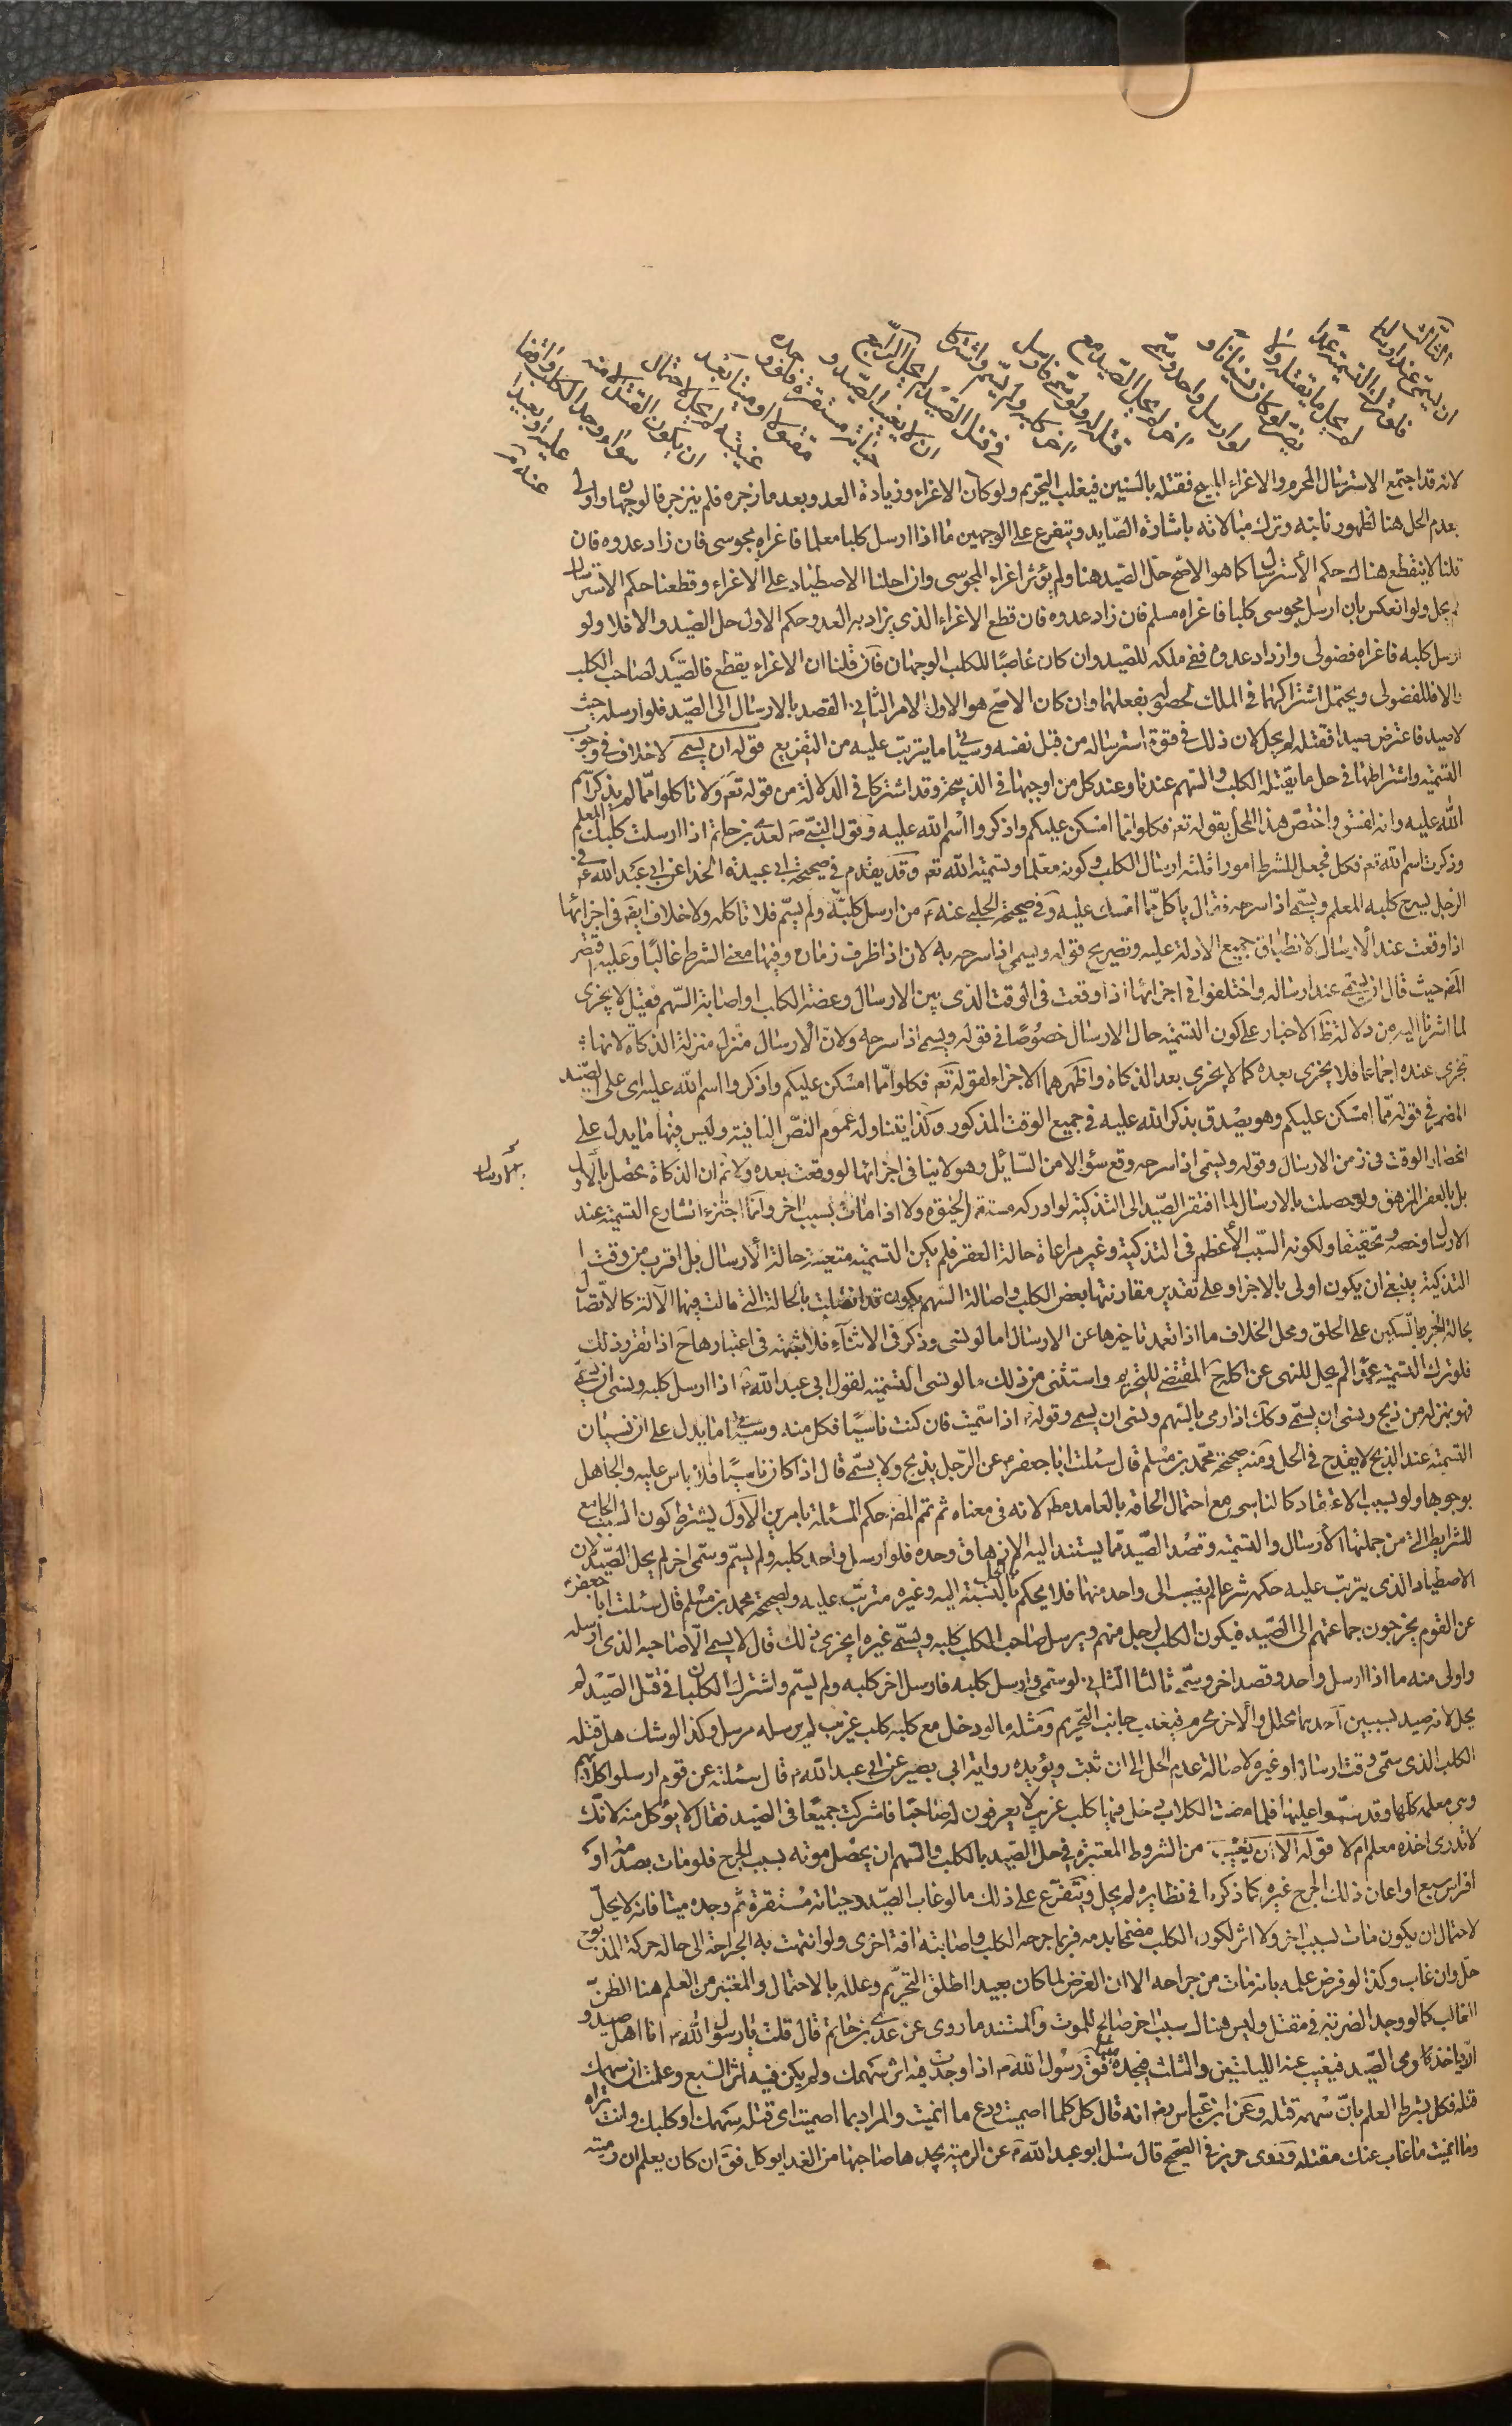 الثالث
ان يسمي عند ارساله
فلو ترك التسمية عمدا
لم يحل ما يقتله ولا
يضر لو كان نسيانا و
لو ارسل واحد وسمى
اخر لم يحل الصيد مع
قتله له ولو سمى فارسل
اخر كلبه ولم يسم واشتركا
في قتل الصيد لم يحل الرابع
ان لا يغيب الصيد و
حياته مستقرة فلو وجده
مقتولا او ميتا بعد
غيبته لم يحل لاحتمال
ان يكون القتل لا منه
سواء وجد الكلب واقفا
عليه او بعيدا
عنه
لانه قد اجتمع الاسترسال المحرم والاغراء المبيح فقتله بالسببين فيغلب التحريم ولو كان الاغراء وزيادة العدو بعد ما زجره فلم ينزجر فالوجهان واولى
بعدم الحل هنا لظهور تابيه وترك مبالاته باشارة الصايد ويتفرع على الوجهين ما اذا ارسل كلبا معلما فاغراه مجوسى فان زاد عدوه فان
قلنا لا ينقطع هناك حكم الاسترسال كما هو الاصح حل الصيد هنا ولم يؤثر اغراء المجوسى وان احلنا الاصطياد على الاغراء وقطعنا حكم الاسترسال
لم يحل ولو انعكس بان ارسل مجوسى كلبا فاغراه مسلم فان زاد عدوه فان قطع الاغراء الذى يزاد به العدو حكم الاول حل الصيد والا فلا ولو
ارسل كلبه فاغراه فضولى وازداد عدوه ففى ملكه للصيد وان كان غاصبا للكلب الوجهان فان قلنا ان الاغراء يقطع فالصيد لصاحب الكلب
والا فللفضولى ويحتمل اشتراكهما فى الملك لحصوله بفعلهما وان كان الاصح هو الاول الامر الثانى القصد بالارسال الى الصيد فلو ارسله حيث
لا صيد فاعترض صيدا فقتله لم يحل لان ذلك فى قوة استرساله من قبل نفسه وسيأتى ما يترتب عليه من التفريع قوله ان يسمى لا خلاف فى وجوب
التسمية واشتراطها فى حل ما يقتله الكلب والسهم عندنا وعند كل من اوجبها فى الذبيحة وقد اشتركا فى الدلالة من قوله تع ولا تاكلوا مما لم يذكر اسم
الله عليه وانه لفسق واختص هذا المحل بقوله تع فكلوا مما امسكن عليكم واذكروا اسم الله عليه وقول النبى ص لعدى بن حاتم اذا ارسلت كلبك المعلم
وذكرت اسم الله تع فكل فجعل للشرط امورا ثلثة ارسال الكلب وكونه معلما وتسمية الله تع وقد تقدم فى صحيحة ابى عبيدة الحذا عن ابى عبد الله ع فى
الرجل يسرح كلبه المعلم ويسمى اذا سرحه فقال ياكل مما امسك عليه وفى صحيحة الحلبى عنه ع من ارسل كلبه ولم يسم فلا تاكله ولا خلاف ايضا فى اجزائها
اذا وقعت عند الارسال لانطباق جميع الادلة عليه وتصريح قوله ويسمى اذا سرحه به لان اذا ظرف زمان وفيها معنى الشرط غالبا وعليه اقتصر
المص حيث قال ان يسمى عند ارساله واختلفوا فى اجزائها اذا وقعت فى الوقت الذى بين الارسال وعضة الكلب او اصابة السهم فقيل لا يجزى
لما اشرنا اليه من دلالة ظ الاخبار على كون التسمية حال الارسال خصوصا فى قوله ويسمى اذا سرحه ولان الارسال منزل منزلة الذكاة لانها
تجزى عنده اجماعا فلا يجزى بعده كما لا يجزى بعد الذكاة واظهرهما الاجزاء لقوله تع فكلوا مما امسكن عليكم واذكروا اسم الله عليه اى على الصيد
المضمر فى قوله مما امسكن عليكم وهو يصدق بذكر الله عليه فى جميع الوقت المذكور وكذا يتناوله عموم النص الباقية وليس فيها ما يدل على
انحصار الوقت فى زمن الارسال وقوله ويسمى اذا سرحه وقع سؤالا من السائل وهو لا ينافى اجزائها لو وقعت بعده ولا نم ان الذكاة تحصل بالارسال
بل بالعقر المزهق ولو حصلت بالارسال لما افتقر الصيد الى التذكية لو ادركه مستقر الحيوة ولا اذا مات بسبب اخر وانما اجتزء الشارع التسمية عند
الارسال رخصة وتخفيفا ولكونه السبب الاعظم فى التذكية وغير مراعاة حالة العقر فلم يكن التسمية متعينة حالة الارسال بل اقرب من وقت
التذكية ينبغى ان يكون اولى بالاجزاء وعلى تقدير مقارنتها بعض الكلب واصابة السهم يكون قد اتصلت بالحالة التى مالت فيها الالة كالاتصال
بحالة الحز بالسكين على الحلق ومحل الخلاف ما اذا تعمد تاخيرها عن الارسال اما لو نسى وذكر فى الاثناء فلا شبهة فى اعتبارها ح اذا تقرر ذلك
فلو ترك التسمية عمدا لم يحل للنهى عن اكله ح المقتضى للتحريم واستثنى من ذلك ما لو نسى التسمية لقول ابى عبد الله ع اذا ارسل كلبه ونسى ان يسمى
فهو بمنزلة من ذبح ونسى ان يسمى وكك اذا رمى بالسهم ونسى ان يسمى وقوله اذا سميت فان كنت ناسيا فكل منه وسيأتى ما يدل على ان نسيان
التسمية عند الذبح لا يقدح فى الحل ومنه صحيحة محمد بن مسلم قال سئلت ابا جعفر ع عن الرجل يذبح ولا يسمى قال اذا كان ناسيا فلا باس عليه والجاهل
بوجوبها ولو بسبب الاعتقاد كالناسى مع احتمال الحاقه بالعامد مط لانه فى معناه ثم تمم المص حكم المسئلة بامرين الاول يشترط كون السبب الجامع
للشرايط التى من جملتها الارسال والتسمية وقصد الصيد مما يستند اليه الازهاق وحده فلو ارسل واحد كلبه ولم يسم وسمى اخر لم يحل الصيد لان
الاصطياد الذى يترتب عليه حكمه شرعا لم ينسب الى واحد منهما فلا يحكم بالحل بالنسبة اليه وغيره مترتب عليه ولصحيحة محمد بن مسلم قال سئلت ابا جعفر ع
عن القوم يخرجون جماعتهم الى الصيد فيكون الكلب لرجل منهم ويرسل صاحب الكلب كلبه ويسمى غيره ايجزى ذلك قال لا يسمى الا صاحبه الذى ارسله
واولى منه ما اذا ارسل واحد وقصد اخر وسمى ثالث الثانى لو سمى وارسل كلبه فارسل اخر كلبه ولم يسم واشترك الكلبان فى قتل الصيد لم
يحل لانه صيد بسببين احدهما محلل والاخر محرم فيغلب جانب التحريم ومثله ما لو دخل مع كلبه كلب غريب لم يرسله مرسل وكذا لو شك هل قتله
الكلب الذى سمى وقت ارساله او غيره لاصالة عدم الحل الى ان ثبت ويؤيده رواية ابى بصير عن ابى عبد الله ع قال سئلته عن قوم ارسلوا كلابهم
وهى معلمة كلها وقد سموا عليها فلما مضت الكلاب دخل فيها كلب غريب لا يعرفون له صاحبا فاشركت جميعا فى الصيد فقال لا يؤكل منه لانك
لا تدرى اخذه معلم ام لا قوله الا ان يغيب من الشروط المعتبرة فى حل الصيد بالكلب والسهم ان يحصل موته بسبب الجرح فلو مات بصدمة او
افتراس سبع او اعان ذلك الجرح غيره كما ذكرنا فى نظايره لم يحل ويتفرع على ذلك ما لو غاب الصيد وحياته مستقرة ثم وجده ميتا فانه لا يحل
لاحتمال ان يكون مات بسبب اخر ولا اثر لكون الكلب مضمخا بدمه فربما جرحه الكلب واصابته افة اخرى ولو انتهت به الجراحة الى حالة حركة المذبوح
حل وان غاب وكذا لو فرض علمه بانه مات من جراحه الا ان الغرض لما كان بعيدا اطلق التحريم وعلله بالاحتمال والمعتبر من العلم هنا الظن
الغالب كما لو وجد الضربة فى مقتل وليس هناك سبب اخر صالح للموت والمستند ما روى عن عدى بن حاتم قال قلت يا رسول الله ص انا اهل صيد و
ان احدنا رمى الصيد فيغيب عنه الليلتين والثلث فيجده ميتا فق رسول الله ص اذا وجدت فيه اثر سهمك ولم يكن فيه اثر السبع وعلمت ان سهمك
قتله فكل بشرط العلم بان سهمه قتله وعن ابن عباس رض انه قال كل كلما اصميت ودع ما انميت والمراد بما اصميت اى قتله سهمك او كلبك وانت تراه
وما انميت ما غاب عنك مقتله وروى حريز فى الصحيح قال سئل ابو عبد الله ع عن الرمية يجدها صاحبها من الغد ايوكل فق ان كان يعلم ان رميته